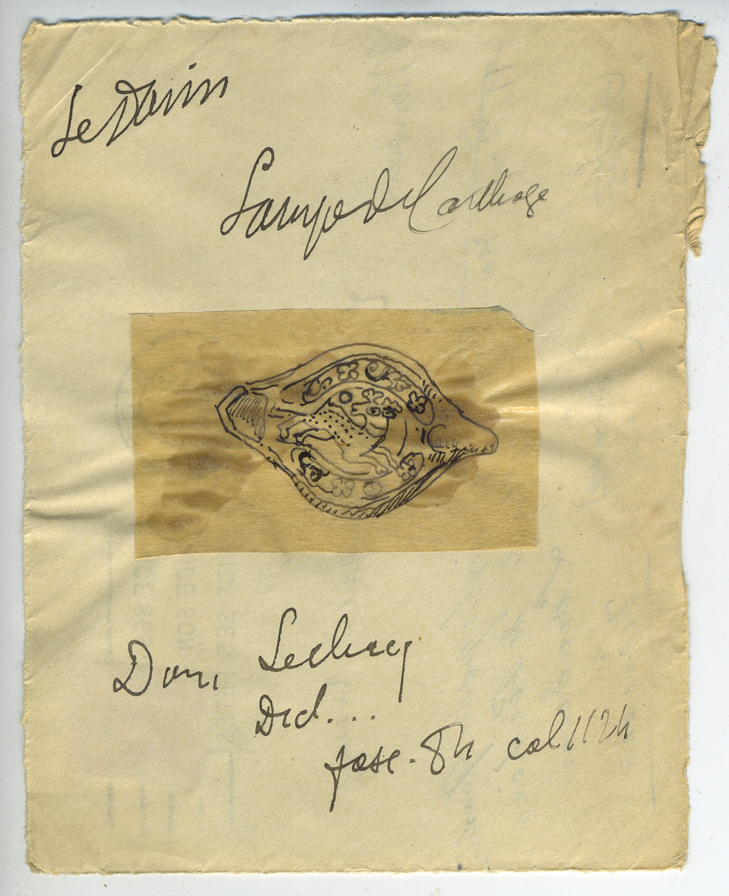 Le Daim
Lampe de Carthage
Dom Leclercq
Dict...
fasc. 84 col 1124